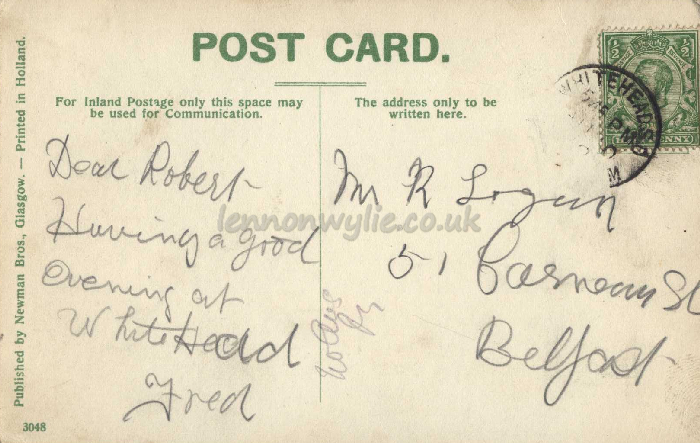 POST CARD.
For Inland Postage only this space may
be used for Communication.
The address only to be
written here.
Dear Robert
Having a good
evening at
WhiteHead
Fred
Mr R Logan
51
Belfast
WHITEHEAD
Published by Newman Bros., Glasgow. — Printed in Holland.
3048
lennonwylie.co.uk